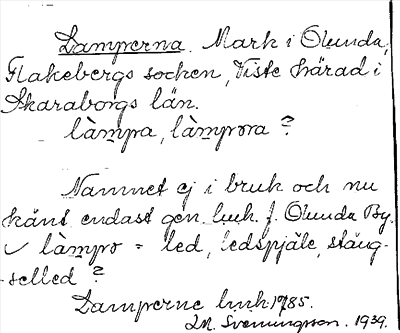 Lamperna. Mark i Olunda,
Flakebergs socken, Viste härad i
Skaraborgs län.
làmpa, làmpora ?
Namnet ej i bruk och nu
känt endast gen. luh. f. Olunda By.
✓ làmpo = led, ledspjäle, stäng-
selled ?
Lamperne luh: 1785.
Svenungsson. 1939.